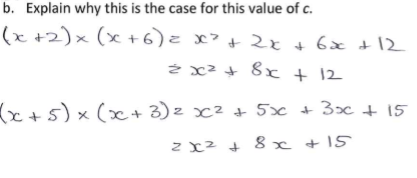 b. Explain why this is the case for this value of c.
(x + 2) × (x + 6) = x² + 2x + 6x + 12
= x² + 8x + 12
(x + 5) × (x + 3) = x² + 5x + 3x + 15
= x² + 8x + 15